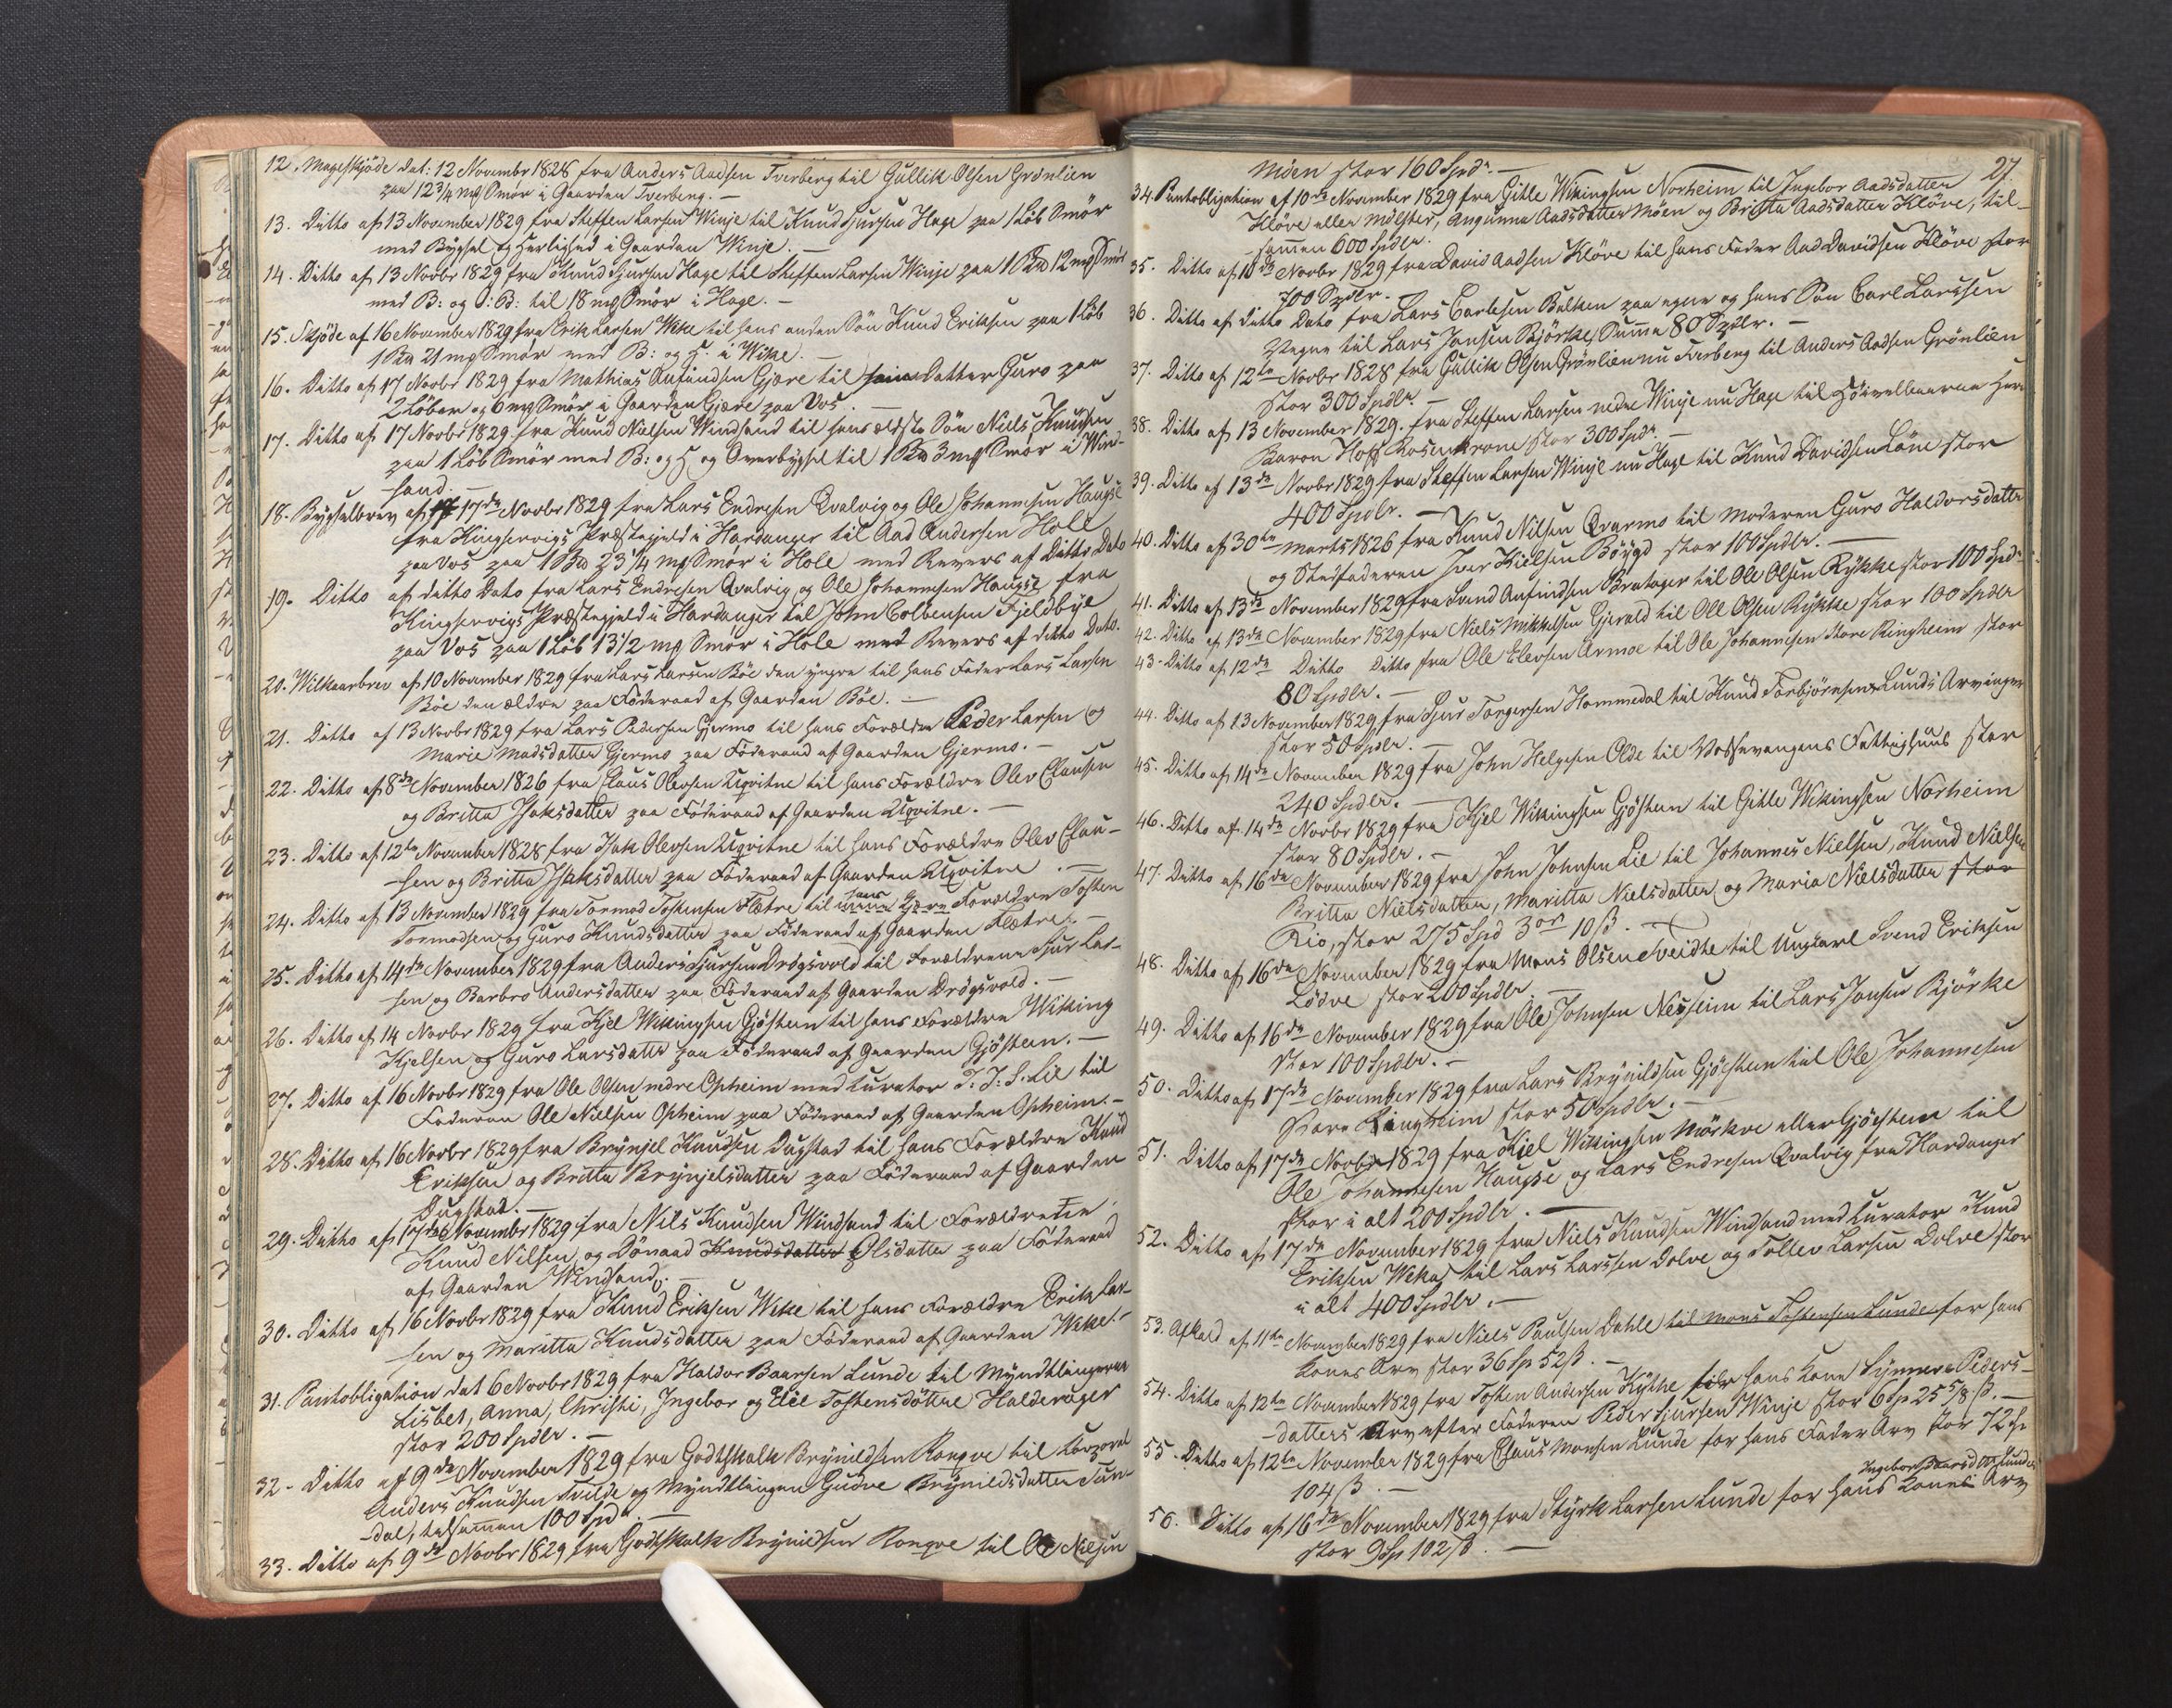 12. Mageskjöde dat: 12 Novembr 1828 fra Anders Aadsen Tverberg til Gullik Olsen Grönlien
paa 12 3/4 mk Smör i Gaarden Tverberg. —
13. Ditto af 13 November 1829 fra Steffen Larsen Winje til Knud Sjursen Hage paa 1 Löb Smör
med Bygsel og Herlighed i Gaarden Winje. —
14. Ditto af 13 Novbr 1829 fra Knud Sjursen Hage til Steffen Larsen Winje paa 1 12 mk Smör
med B: og O: B: til 18 mk Smör i Hage. —
15. Skjöde af 16 November 1829 fra Erik Larsen Weke til hans anden Sön Knud Eriksen paa 1 Löb
1 21 mk Smör med B: og H: i Wike. —
16. Ditto af 17 Novbr 1829 fra Mathias Anfindsen Gjære til Datter Guro paa
2 Löber og 6 mk Smör i Gaarden Gjære paa Vos. —
17. Ditto af 17 Novbr 1829 fra Knud Nielsen Windsand til hans ældste Sön Niels Knudsen
paa 1 Löb Smör med B: og H og Overbygsel til 1 3 mk Smör i Wind-
sand. —
18. Bygselbrev af 17de Novbr 1829 fra Lars Endresen Qvalvig og Ole Johannesen Haugse
fra Kingservigs Præstegjeld i Hardanger til Aad Andersen Hole
paa Vos paa 1 23 1/4 mk Smör i Hole med Revers af Ditto Dato
19. Ditto af ditto Dato fra Lars Endresen Qvalvig og Ole Johannesen Haugse fra
Kingservigs Præstegjeld i Hardanger til John Colbensen Fjeldbye
paa Vos paa 1 Löb 13 1/2 mk Smör i Hole med Revers af ditto Dato.
20. Wilkaarbrev af 10 November 1829 fra Lars Larsen Böe den yngre til hans Fader Lars Larsen
Böe den ældre paa Föderaad af Gaarden Böe. —
21. Ditto af 13 Novbr 1829 fra Lars Pedersen Gjermo til hans Forældre Peder Larsen og
Marie Madsdatter Gjermo paa Föderaad af Gaarden Gjermo. —
22. Ditto af 8de November 1826 fra Claus Olevsen Uqvitne til hans Forældre Olev Clausen
og Britta Isaksdatter paa Föderaad af Gaarden Uqvitne. —
23. Ditto af 12te November 1828 fra Isak Olevsen Uqvitne til hans Forældre Olev Clau-
sen og Britta Isaksdatter paa Föderaad af Gaarden Uqvitne. —
24. Ditto af 13 November 1829 fra Tormod Tostensen Flætre til hans Forældre Tosten
Tormodsen og Guro Knudsdatter paa Föderaad af Gaarden Flætre. —
25. Ditto af 14de November 1829 fra Anders Sjursen Drögsvold til Forældrene Sjur Lar-
sen og Barbro Andersdatter paa Föderaad af Gaarden Drögsvold. —
26. Ditto af 14 Novbr 1829 fra Kjel Wikingsen Gjösten til hans Forældre Wiking
Kjelsen og Guro Larsdatter paa Föderaad af Gaarden Gjösten. —
27. Ditto af 16 Novbr 1829 fra Ole Olsen nedre Opheim med Curator T: J: S. Lie til
Faderen Ole Nielsen Opheim paa Föderaad af Gaarden Opheim. —
28. Ditto af 16 Novbr 1829 fra Brynjel Knudsen Dugstad til hans Forældre Knud
Eriksen og Britta Brynjelsdatter paa Föderaad af Gaarden
Dugstad. —
29. Ditto af 17de November 1829 fra Niels Knudsen Windsand til Forældrene
Knud Nilsen og Dönaad Knudsdatter Olsdatter paa Föderaad
af Gaarden Windsand. —
30. Ditto af 16 Novbr 1829 fra Knud Eriksen Weke til hans Forældre Erik Lar-
sen og Maritta Knudsdatter paa Föderaad af Gaarden Weke. —
31. Pantobligation dat 6 Novbr 1829 fra Haldor Baarsen Lunde til Myndtlingerne
Lisbet, Anna, Christi, Ingebor og Elie Tostensdöttre Halderager
stor 200 Spdlr. —
32. Ditto af 9de November 1829 fra Godtskalk Brynildsen Rongve til Korporal
Anders Knudsen Tvilde og Myndtlingen Gudve Brynildsdatter Sun-
dal, tilsammen 100 Spdr. —
33. Ditto af 9de Novbr 1829 fra Godtskalk Brynildsen Rongve til Ole Nielsen
27.
Möen stor 160 Spdr. —
34. Pantobligation af 10de November 1829 fra Gitle Wikingsen Norheim til Ingebor Aadsdatter
Klöve eller Mölster, Angunna Aadsdatter Möen og Britta Aadsdatter Klöve, til-
sammen 600 Spdlr.
35. Ditto af 10de Novbr 1829 fra David Aadsen Klöve til hans Fader Aad Davidsen Klöve stor
700 Spdlr. —
36. Ditto af ditto Dato fra Lars Carlesen Balken paa egne og hans Sön Carl Larssen
Vegne til Lars Jonsen Björke, Summa 80 Spdlr. —
37. Ditto af 12te Novbr 1828 fra Gullik Olsen Grönlien nu Tverberg til Anders Aadsen Grönlien
stor 300 Spdlr. —
38. Ditto af 13 November 1829. fra Steffen Larsen nedre Winje nu Hage til Höivelbaarne Herr
Baron Hoff Rosenkrone stor 300 Spdr. —
39. Ditto af 13de Novbr 1829 fra Steffen Larsen Winje nu Hage til Knud Davidsen Löne stor
400 Spdlr. —
40. Ditto af 30te Marts 1826 fra Knud Nilsen Qvarmo til Moderen Guro Haldorsdatter
og Stedfaderen Iver Kielsen Böygd stor 100 Spdlr. —
41. Ditto af 13de November 1829 fra Svend Anfindsen Bratager til Ole Olsen Rykke stor 100 Spdr
42. Ditto af 13de November 1829 fra Niels Mikkelsen Gjerald til Ole Olsen Rykke stor 100 Spdlr
43. Ditto af 12de Ditto Ditto fra Ole Elevsen Armoe til Ole Johannesen Store Ringheim stor
80 Spdlr. —
44. Ditto af 13 November 1829 fra Sjur Torgersen Hommedal til Knud Torbjörnsen Lunds Arvinger
stor 50 Spdlr. —
45. Ditto af 14de November 1829 fra John Helgesen Olde til Vossevangens Fattighuus stor
240 Spdlr. —
46. Ditto af 14de Novbr 1829 fra Kjel Wikingsen Gjösten til Gitle Wikingsen Norheim
stor 80 Spdlr. —
47. Ditto af 16de November 1829 fra John Johnsen Lie til Johannes Nielsen, Knud Nielsen
Britta Nielsdatter, Maritta Nielsdatter og Maria Nielsdatter stor
Rio, stor 275 Spd 3 ort 10 ß. —
48. Ditto af 16de November 1829 fra Mons Olsen Sveidte til Ungkarl Svend Eriksen
Lödve stor 200 Spdlr —
49. Ditto af 16de November 1829 fra Ole Johnsen Nesheim til Lars Jonsen Björke
stor 100 Spdlr. —
50. Ditto af 17de November 1829 fra Lars Brynildsen Gjösten til Ole Johannesen
Store Ringheim stor 50 Spdlr. —
51. Ditto af 17de Novbr 1829 fra Kjel Wikingsen Mörkve eller Gjösten til
Ole Johannesen Haugse og Lars Endresen Qvalvig fra Hardanger
stor i alt 200 Spdlr. —
52. Ditto af 17de November 1829 fra Niels Knudsen Windsand med Curator Knud
Eriksen Weka til Lars Larssen Dolve og Tollev Larsen Dolve stor
i alt 400 Spdlr. —
53. Afkald af 11te November 1829 fra Niels Paulsen Dahle til Mons Tostensen Lunde for hans
Kones Arv stor 36 Sp 52 ß. —
54. Ditto af 12te November 1829 fra Tosten Andersen Kythe for hans Kone Peders-
datters Arv efter Faderen Peder Sjursen Winje stor 6 Sp 25 5/8 ß. —
55. Ditto af 12te November 1829 fra Claus Monsen Lunde for hans Fader Arv stor 72 Sp
104 ß. —
56. Ditto af 16de November 1829 fra Styrk Larsen Lunde for hans Kones Ingebor Lunde Arv
stor 9 Sp 102 ß. —